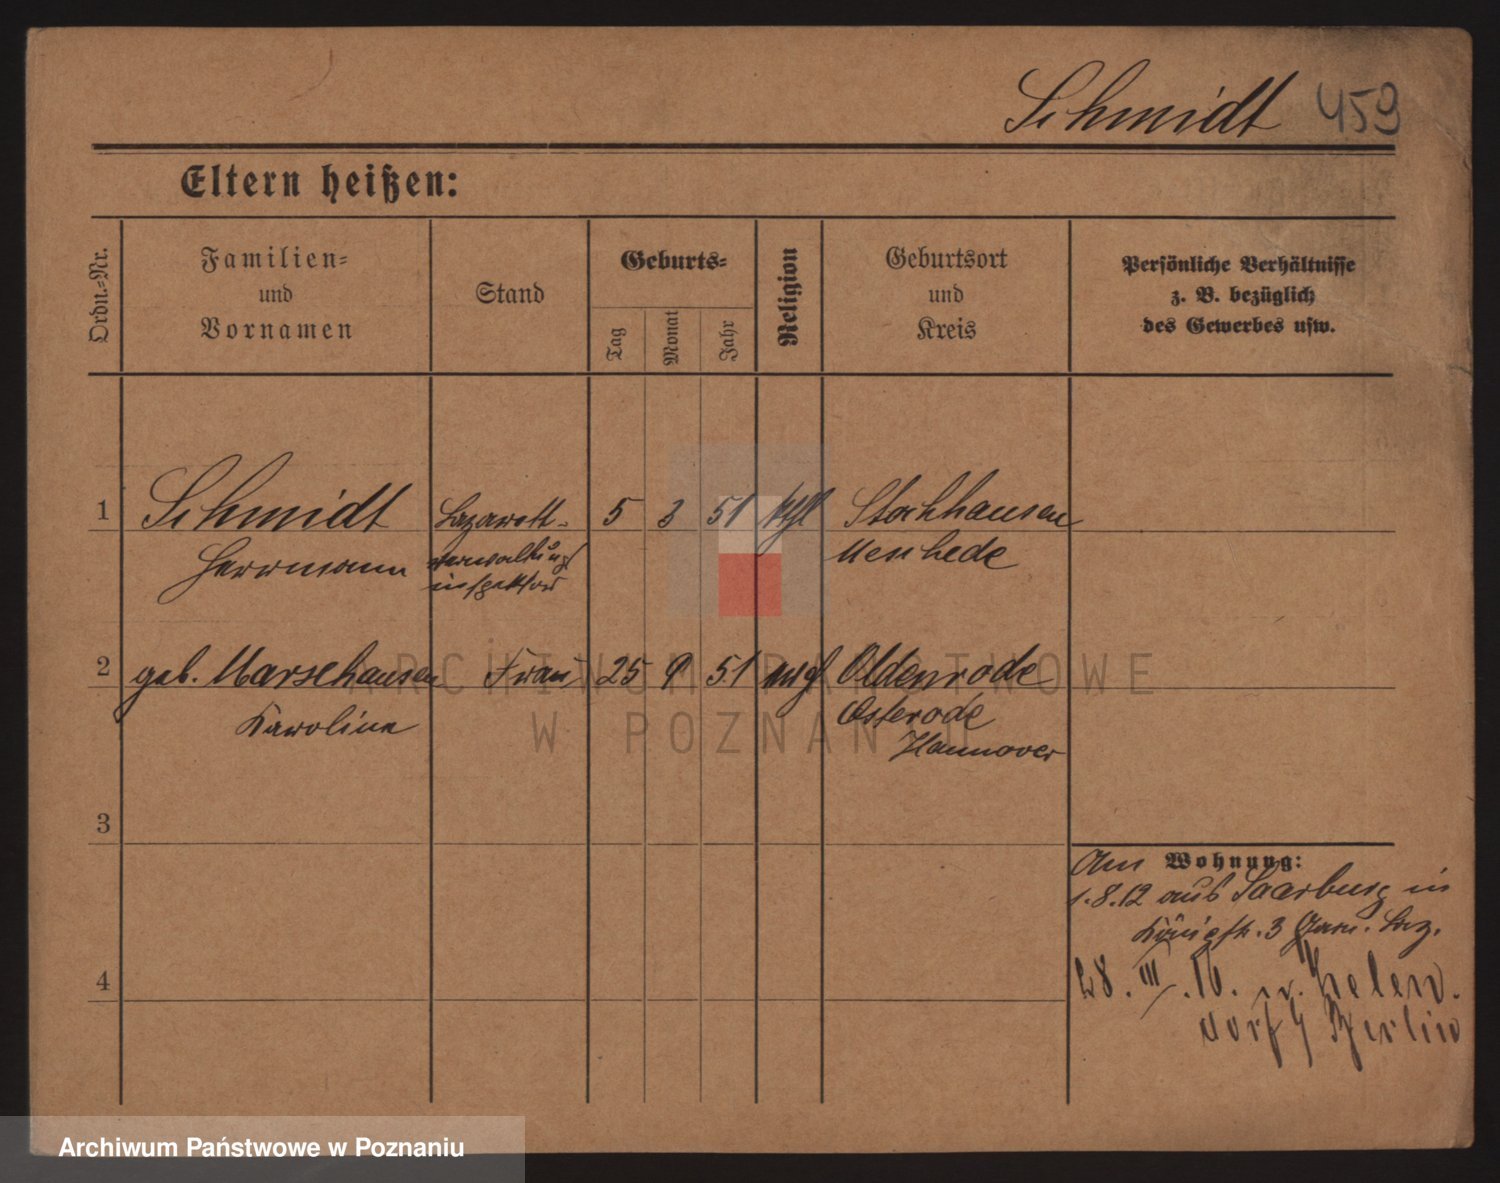 Schmidt 459
Eltern heißen:
Ordn.-Nr.
Familien-
und
Vornamen
Stand
Geburts-
Tag
Monat
Jahr
Religion
Geburtsort
und
Kreis
Persönliche Verhältnisse
z. B. bezüglich
des Gewerbes usw.
1 Schmidt Lazarett- 5 3 51 ktl Stockhausen
Herrmann verwaltungs Meschede
inspektor
2 geb. Marsehausen Frau 25 9 51 evgl Oldenrode
Karoline Osterode
Hannover
3
4
Wohnung:
Am
1.8.12 aus Saarburg in
Königstr. 3 Garn. Laz.
28. III. 16. n. Zehlen
dorf Berlin
ARCHIWUM PAŃSTWOWE
W POZNANIU
Archiwum Państwowe w Poznaniu